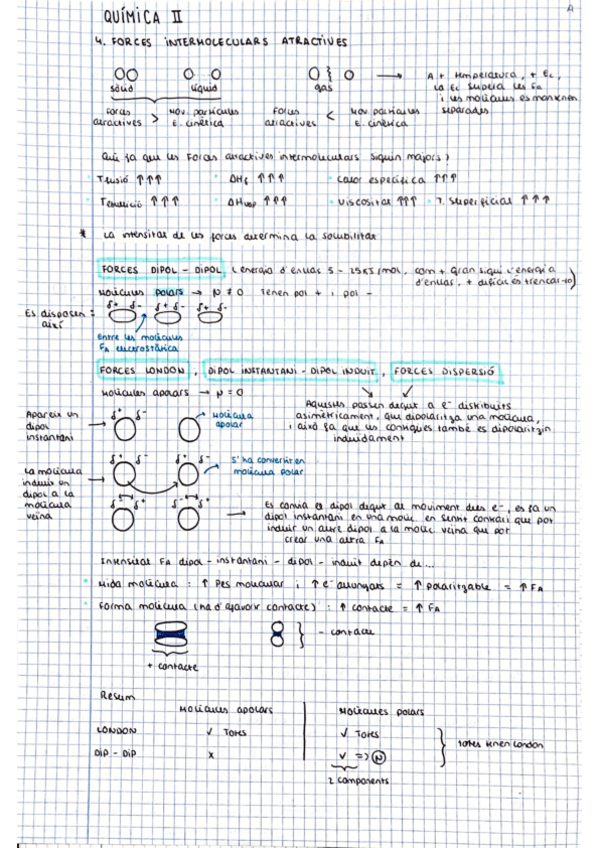 QUÍMICA II
4. FORCES INTERMOLECULARS ATRACTIVES
sòlid líquid gas → A + temperatura, + Ec,
la Ec supera les FA
i les molècules es mantenen
separades
Forces atractives > Mov. partícules E. cinètica
Forces atractives < Mov. partícules E. cinètica
Què fa que les forces atractives intermoleculars siguin majors?
· T fusió ↑↑↑ · ΔHf ↑↑↑ · calor específica ↑↑↑
· T ebullició ↑↑↑ · ΔHvap ↑↑↑ · viscositat ↑↑↑ · T. superficial ↑↑↑
* La intensitat de les forces determina la solubilitat
FORCES DIPOL - DIPOL (energia d'enllaç 5 - 25KJ/mol, com + gran sigui l'energia
d'enllaç, + difícil és trencar-lo)
Molècules polars → µ ≠ 0 Tenen pol + i pol -
Es disposen així: δ+ δ- δ+ δ- δ+ δ-
Entre les molècules
FA electrostàtica
FORCES LONDON, DIPOL INSTANTANI - DIPOL INDUIT, FORCES DISPERSIÓ
Molècules apolars → µ = 0
Aquestes passen degut a e- distribuïts
asimètricament, que dipolaritza una molècula,
i això fa que les contigües també es dipolaritzin
induïdament
Apareix un
dipol
instantani
δ+ δ-
Molècula
apolar
La molècula
indueix un
dipol a la
molècula
veïna
δ+ δ- δ+ δ-
S'ha convertit en
molècula polar
δ- δ+ δ- δ+
Es canvia el dipol degut al moviment dels e-, es fa un
dipol instantani en una molèc en sentit contrari que pot
induir un altre dipol a la molèc veïna que pot
crear una altra FA
Intensitat FA dipol - instantani - dipol - induit depèn de...
· Mida molècula : ↑ Pes molecular i ↑ e- allunyats = ↑ polaritzable = ↑ FA
· Forma molècula (ha d'haver contacte) : ↑ contacte = ↑ FA
+ contacte
- contacte
Resum
Molècules apolars Molècules polars
LONDON √ Totes √ Totes
DIP - DIP x √ => µ
2 components
totes tenen London